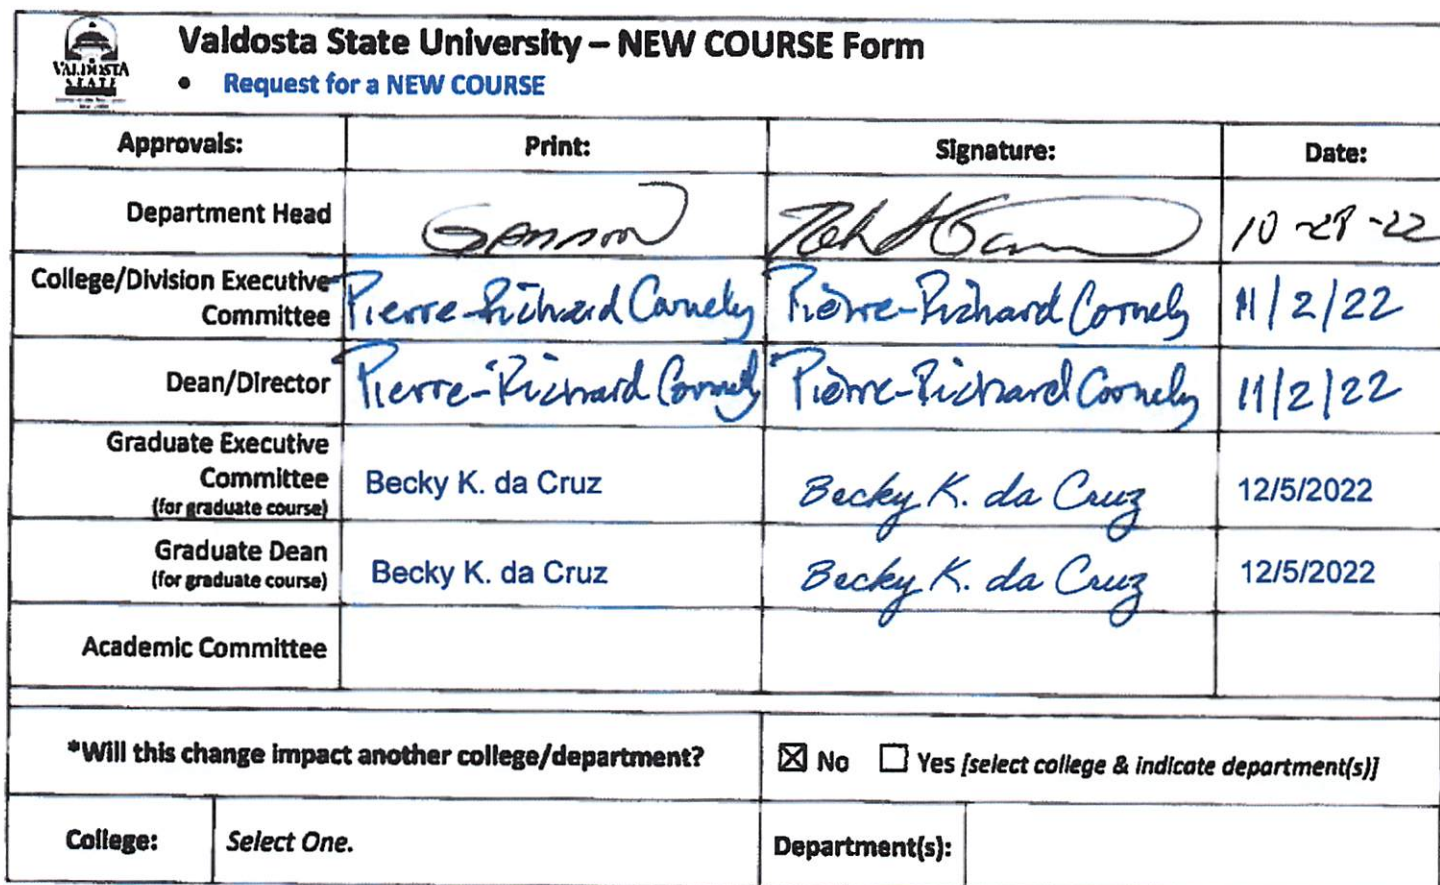 VALDOSTA
STATE
Valdosta State University – NEW COURSE Form
• Request for a NEW COURSE
Approvals: Print: Signature: Date:
Department Head Gannon 10-28-22
College/Division Executive
Committee Pierre-Richard Cornely Pierre-Richard Cornely 11/2/22
Dean/Director Pierre-Richard Cornely Pierre-Richard Cornely 11/2/22
Graduate Executive
Committee Becky K. da Cruz Becky K. da Cruz 12/5/2022
(for graduate course)
Graduate Dean
(for graduate course) Becky K. da Cruz Becky K. da Cruz 12/5/2022
Academic Committee
*Will this change impact another college/department? ☒ No ☐ Yes [select college & indicate department(s)]
College: Select One. Department(s):